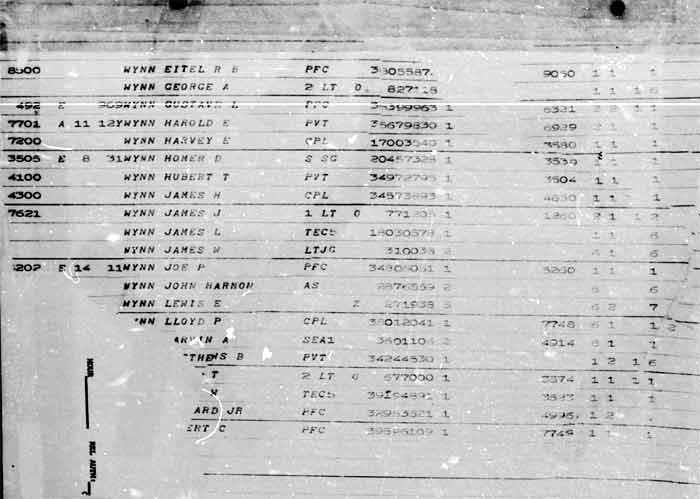 8500 WYNN EITEL R B PFC 3805587. 9050 1 1 1
WYNN GEORGE A 2 LT O 827118 1 1 1 6
492 E WYNN GUSTAVE L PFC 1 6321 2 2 1 1
7701 A 11 12YWYNN HAROLD E PVT 35679830 1 6929 2 1 1
7200 WYNN HARVEY E CPL 17003540 1 3580 1 1 1
3505 E 8 31WYNN HOMER D S SG 20457328 1 3539 1 1
4100 WYNN HUBERT T PVT 34972795 1 3504 1 1 1
4300 WYNN JAMES H CPL 34573893 1 4630 1 1 1
7621 WYNN JAMES J 1 LT O 771205 1 1260 2 1 1 2
WYNN JAMES L TEC5 18030578 1 1 1 6
WYNN JAMES W LTJG 310038 2 6 1 6
E 14 11WYNN JOE P PFC 1 3260 1 1 1
WYNN JOHN HARMON AS 2876559 2 6 6
WYNN LEWIS E 2 271938 5 6 2 7
NN LLOYD P CPL 38012041 1 7748 6 1 1 2
A SEA1 2 4914 6 1 1
THEWS B PVT 34244530 1 1 2 1 6
T 2 LT O 677000 1 3574 1 1 1 1
TEC5 39194891 1 3533 1 1 1
ARD JR PFC 1 4996 1 2
ERT C PFC 39596109 1 7749 1 1 1
HOUR
REL AUTH: